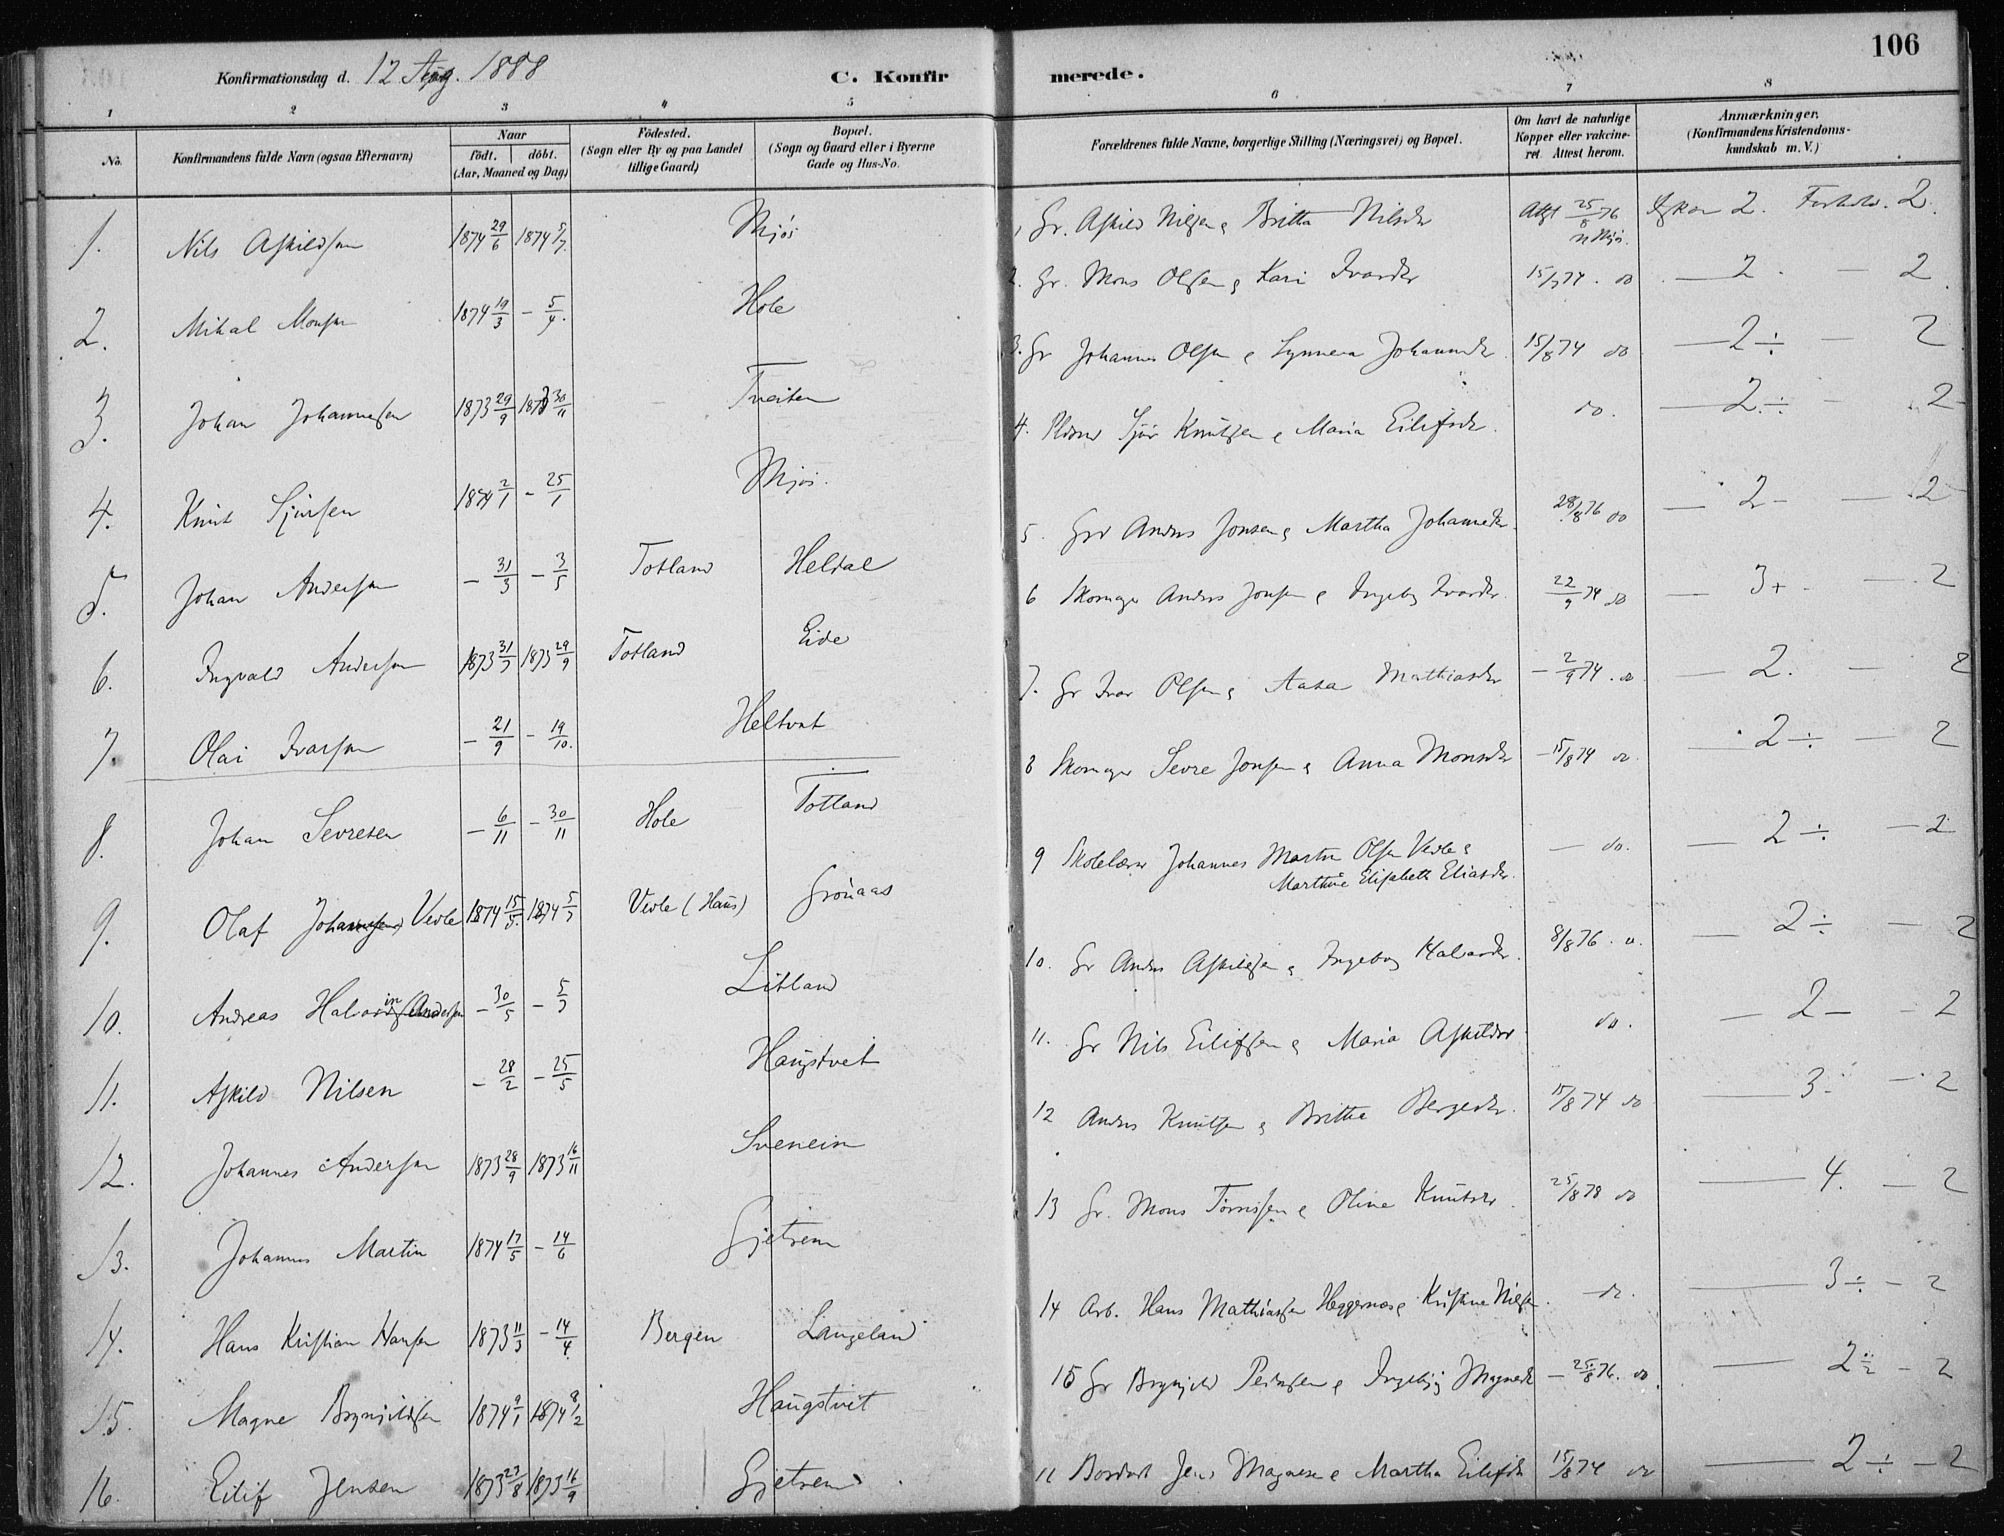 106
Konfirmationsdag d. 12 Aug. 1888
C. Konfir merede.
1 2 3 4 5 6 7 8
No.
Konfirmandens fulde Navn (ogsaa Efternavn)
Naar
födt. | döbt.
(Aar, Maaned og Dag)
Födested.
(Sogn eller By og paa Landet
tillige Gaard)
Bopæl.
(Sogn og Gaard eller i Byerne
Gade og Hus-No.
Forældrenes fulde Navne, borgerlige Stilling (Næringsvei) og Bopæl.
Om havt de naturlige
Kopper eller vakcine-
ret. Attest herom.
Anmærkninger.
(Konfirmandens Kristendoms-
kundskab m. V.)
1. Nils Askildsen 1874 29/6 1874 5/7 Mjøs 1 Gr. Askild Nilsen & Britta Nilsdr Att 25/8 76 2. Forhold. 2.
2. Mikal Monsen 1874 19/3 - 5/4. Hole 2. Gr. Mons Olsen & Kari Ivarsdr 15/7 74. do — 2. — 2
3. Johan Johannessen 1873 29/9 1873 30/11 Tveiten 3. Gr Johannes Olsen & Synneva Johannesdr 15/8 74 do — 2 ÷ — 2
4. Knut Sjursen 1874 2/1 - 25/1 Mjøs. 4. Sjur Knutsen & Maria Eilifsdr. do. — 2 ÷ - 2
5. Johan Andersen - 31/3 - 3/5 Totland Heldal 5. Grd Anders Jonsen & Martha Johannesdr. 28/8 76 do — 2 - — 2
6. Ingvald Andersen 1873 31/7 1873 29/9 Totland Eide 6 Skomager Anders Jonsen & Ingeb Ivarsdr. 22/9 74 do — 3+ — 2
7. Olai Ivarsen - 21/9 - 19/10. Heltvet 7. Gr Ivar Olsen & Aasa Mathiasdr - 2/9 74. do — 2. — 2
8. Johan Sevresen - 6/11 - 30/11 Hole Totland 8 Skomager Sevre Jonsen & Anna Monsdr - 15/8 74 do — 2 ÷ — 2
9. Olaf Johannesen Vevle 1874 15/5. 1874 5/7 Vevle (Haus) Grønaas 9 Skolelærer Johannes Martin Olsen Vevle &
Marthine Elisabeth Eliasdr. — do. — 2 ÷ — 2
10. Andreas Halvardin Andersen - 30/5 - 5/7 Litland 10. Gr Anders Askildsen & Ingeborg Halvardr. 8/8 76. — 2 ÷ — 2
11. Askild Nilsen - 28/2 - 25/5 Haugstvet 11. Gr Nils Eilifsen & Maria Askildsdr do. — 2 - - 2
12. Johannes Andersen 1873 28/9 1873 16/11 Svenein 12 Anders Knutsen & Britha Bergesdr. 15/8 74 do — 3 ÷ - 2
13. Johannes Martin 1874 17/5 - 14/6 Gjetrem 13 Gr. Mons Tørrissen & Oline Knutsdr 25/8 78 do — 4. — 2
14. Hans Kristian Hansen 1873 11/3 - 14/4 Bergen Langeland 14 Arb. Hans Mathiassen Heggernæs & Kristine Nilsen. — do. — 3 ÷ - 2
15. Magne Brynjildsen 1874 9/1 1874 8/2 Haugstvet 15 Gr Brynjild Pedersen & Ingeborg Magnesdr - 25/8 76. do. — 2 ÷ - 2
16. Eilif Jensen 1873 23/8 1873 16/9 Gjetrem Jens Magnesen & Martha Eilifsdr 15/8 74 do — 2 ÷ - 2